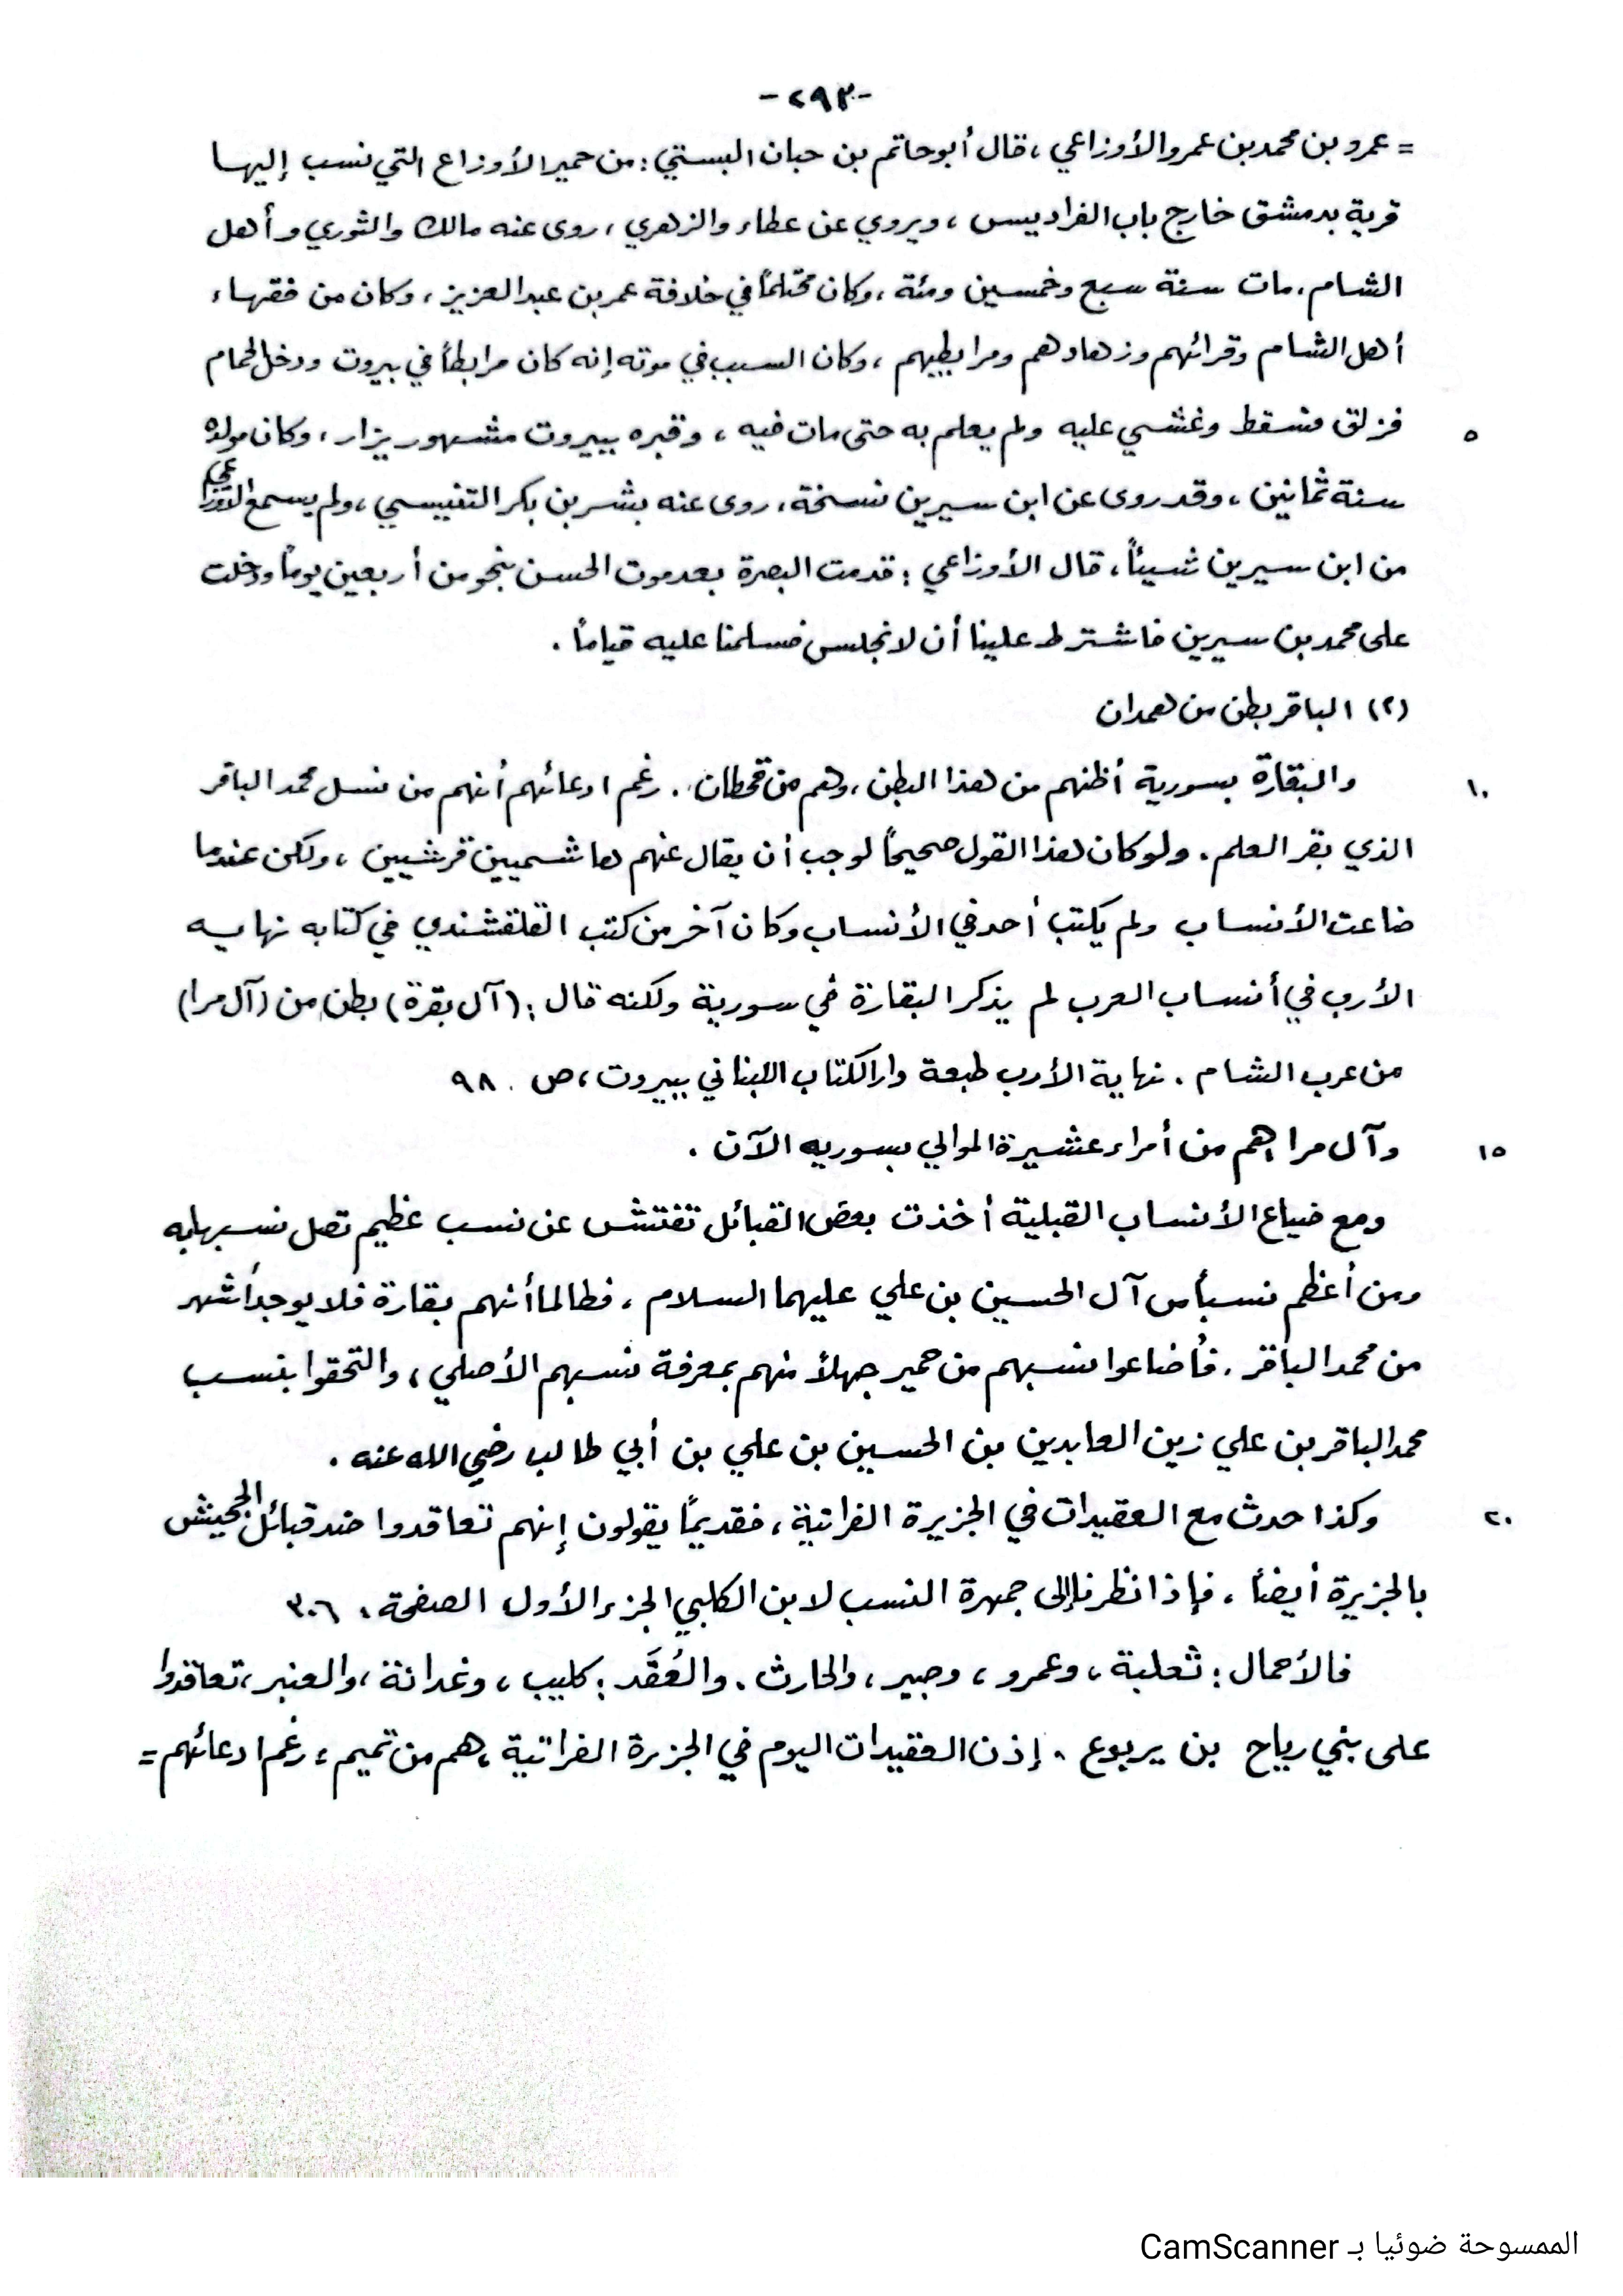 -٢٩٣-
= عمرو بن محمد بن عمرو الأوزاعي ، قال أبو حاتم بن حبان البستي : من حمير الأوزاع التي نسب إليها
قرية بدمشق خارج باب الفراديس ، ويروي عن عطاء والزهري ، روى عنه مالك والثوري وأهل
الشام ، مات سنة سبع وخمسين ومئة ، وكان محتلماً في خلافة عمر بن عبد العزيز ، وكان من فقهاء
أهل الشام وقرائهم وزهادهم ومرابطيهم ، وكان السبب في موته إنه كان مرابطاً في بيروت ودخل الحمام
٥ فزلق فسقط وغشي عليه ولم يعلم به حتى مات فيه ، وقبره ببيروت مشهور يزار ، وكان مولده
سنة ثمانين ، وقد روى عن ابن سيرين نسخة ، روى عنه بشر بن بكر التنيسي ، ولم يسمع الأوزاعي
من ابن سيرين شيئاً ، قال الأوزاعي : قدمت البصرة بعد موت الحسن بنحو من أربعين يوماً ودخلت
على محمد بن سيرين فاشترط علينا أن لا نجلس فسلمنا عليه قياماً .
(٢) الباقر بطن من همدان
١٠ والبقارة بسورية أظنهم من هذا البطن ، وهم من قحطان . رغم ادعائهم أنهم من نسل محمد الباقر
الذي بقر العلم . ولو كان هذا القول صحيحاً لوجب أن يقال عنهم هاشميين قرشيين ، ولكن عندما
ضاعت الأنساب ولم يكتب أحد في الأنساب وكان آخر من كتب القلقشندي في كتابه نهايه
الأرب في أنساب العرب لم يذكر البقارة في سورية ولكنه قال : (آل بقرة) بطن من (آل مرا)
من عرب الشام . نهاية الأرب طبعة دار الكتاب اللبناني ببيروت ، ص ٩٨
١٥ وآل مرا هم من أمراء عشيرة الموالي بسوريه الآن .
ومع ضياع الأنساب القبلية أخذت بعض القبائل تفتش عن نسب عظيم تصل نسبها به
ومن أعظم نسباً من آل الحسين بن علي عليهما السلام ، فطالما أنهم بقارة فلا يوجد أشهر
من محمد الباقر . فأضاعوا نسبهم من حمير جهلاً منهم بمعرفة نسبهم الأصلي ، والتحقوا بنسب
محمد الباقر بن علي زين العابدين بن الحسين بن علي بن أبي طالب رضي الله عنه .
٢٠ وكذا حدث مع العقيدات في الجزيرة الفراتية ، فقديماً يقولون إنهم تعاقدوا ضد قبائل الجحيش
بالجزيرة أيضاً ، فإذا نظرنا إلى جمهرة النسب لابن الكلبي الجزء الأول الصفحة : ٣٠٦
فالأحمال : ثعلبة ، وعمرو ، وصبير ، والحارث . والعُقَد : كليب ، وغدانة ، والعنبر ، تعاقدوا
على بني رياح بن يربوع . إذن العقيدات اليوم في الجزرة الفراتية ، هم من تميم ، رغم ادعائهم =
الممسوحة ضوئيا بـ CamScanner